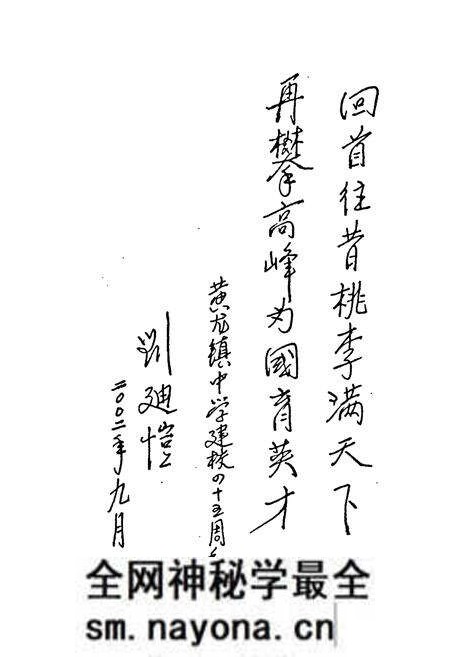 回首往昔桃李满天下
再攀高峰为國育英才
黄龙镇中学建校四十五周
刘廸恺
二〇〇二年九月
全网神秘学最全
sm.nayona.cn